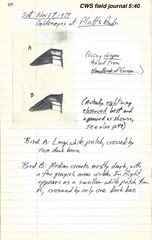 CWS field journal 5:40
Sat Nov 17, 1979
Goldeneyes at Platt's
A
(wing shapes
traced from
Handbook of Europe...)
B
(Actually right wing
observed best and
appeared as shown,
see also p39)
Bird A: Large white patch, crossed by
two dark bars.
Bird B: Median coverts mostly dark, with
a few grayish areas visible. In flight
appears as a smaller white patch than
A, crossed by only one dark bar.